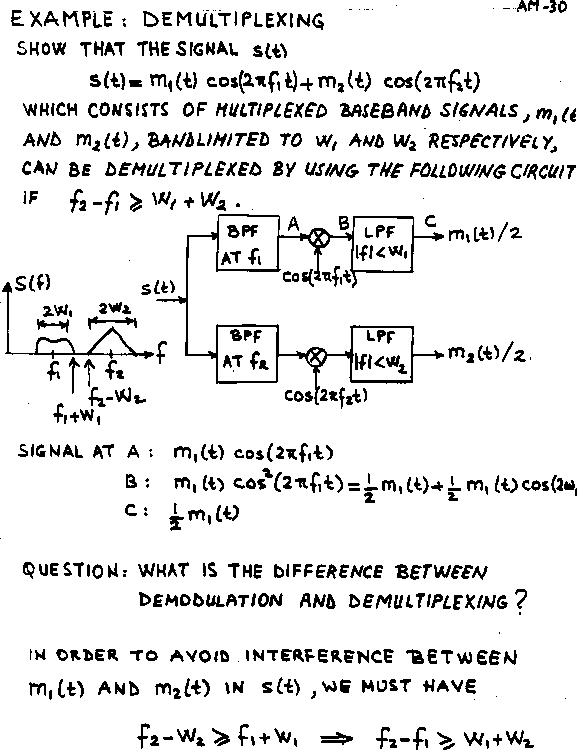 AM-30
EXAMPLE: DEMULTIPLEXING
SHOW THAT THE SIGNAL s(t)
s(t) = m₁(t) cos(2πf₁t) + m₂(t) cos(2πf₂t)
WHICH CONSISTS OF MULTIPLEXED BASEBAND SIGNALS, m₁(t
AND m₂(t), BANDLIMITED TO W₁ AND W₂ RESPECTIVELY,
CAN BE DEMULTIPLEXED BY USING THE FOLLOWING CIRCUIT
IF f₂-f₁ ⩾ W₁ + W₂.
BPF
AT f₁
A
B
LPF
|f|<W₁
C
m₁(t)/2
cos(2πf₁t)
s(t)
S(f)
2W₁
2W₂
f₁
f₂
f
f₂-W₂
f₁+W₁
BPF
AT f₂
LPF
|f|<W₂
m₂(t)/2.
cos(2πf₂t)
SIGNAL AT A: m₁(t) cos(2πf₁t)
B: m₁(t) cos²(2πf₁t) = ½ m₁(t) + ½ m₁(t) cos(2ω₁
C: ½ m₁(t)
QUESTION: WHAT IS THE DIFFERENCE BETWEEN
DEMODULATION AND DEMULTIPLEXING?
IN ORDER TO AVOID INTERFERENCE BETWEEN
m₁(t) AND m₂(t) IN s(t), WE MUST HAVE
f₂-W₂ ⩾ f₁+W₁ ⟹ f₂-f₁ ⩾ W₁+W₂